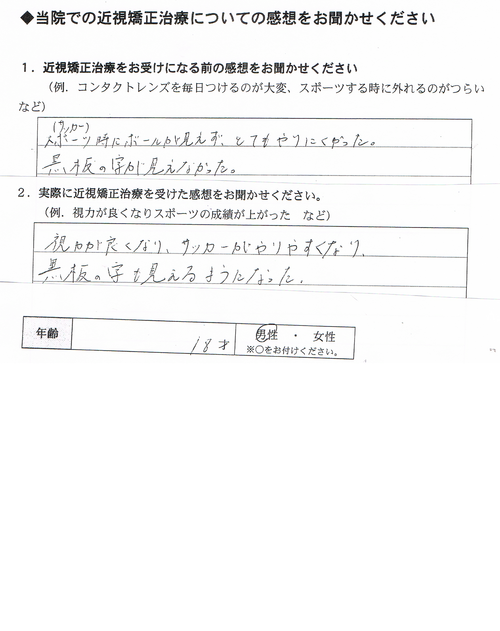 ◆当院での近視矯正治療についての感想をお聞かせください
1．近視矯正治療をお受けになる前の感想をお聞かせください
（例．コンタクトレンズを毎日つけるのが大変、スポーツする時に外れるのがつらい
など）
(サッカー)
スポーツ時にボールが見えず、とてもやりにくかった。
黒板の字が見えなかった。
2．実際に近視矯正治療を受けた感想をお聞かせください。
（例．視力が良くなりスポーツの成績が上がった　など）
視力が良くなり、サッカーがやりやすくなり、
黒板の字も見えるようになった。
年齢　18才　男性　・　女性
※○をお付けください。